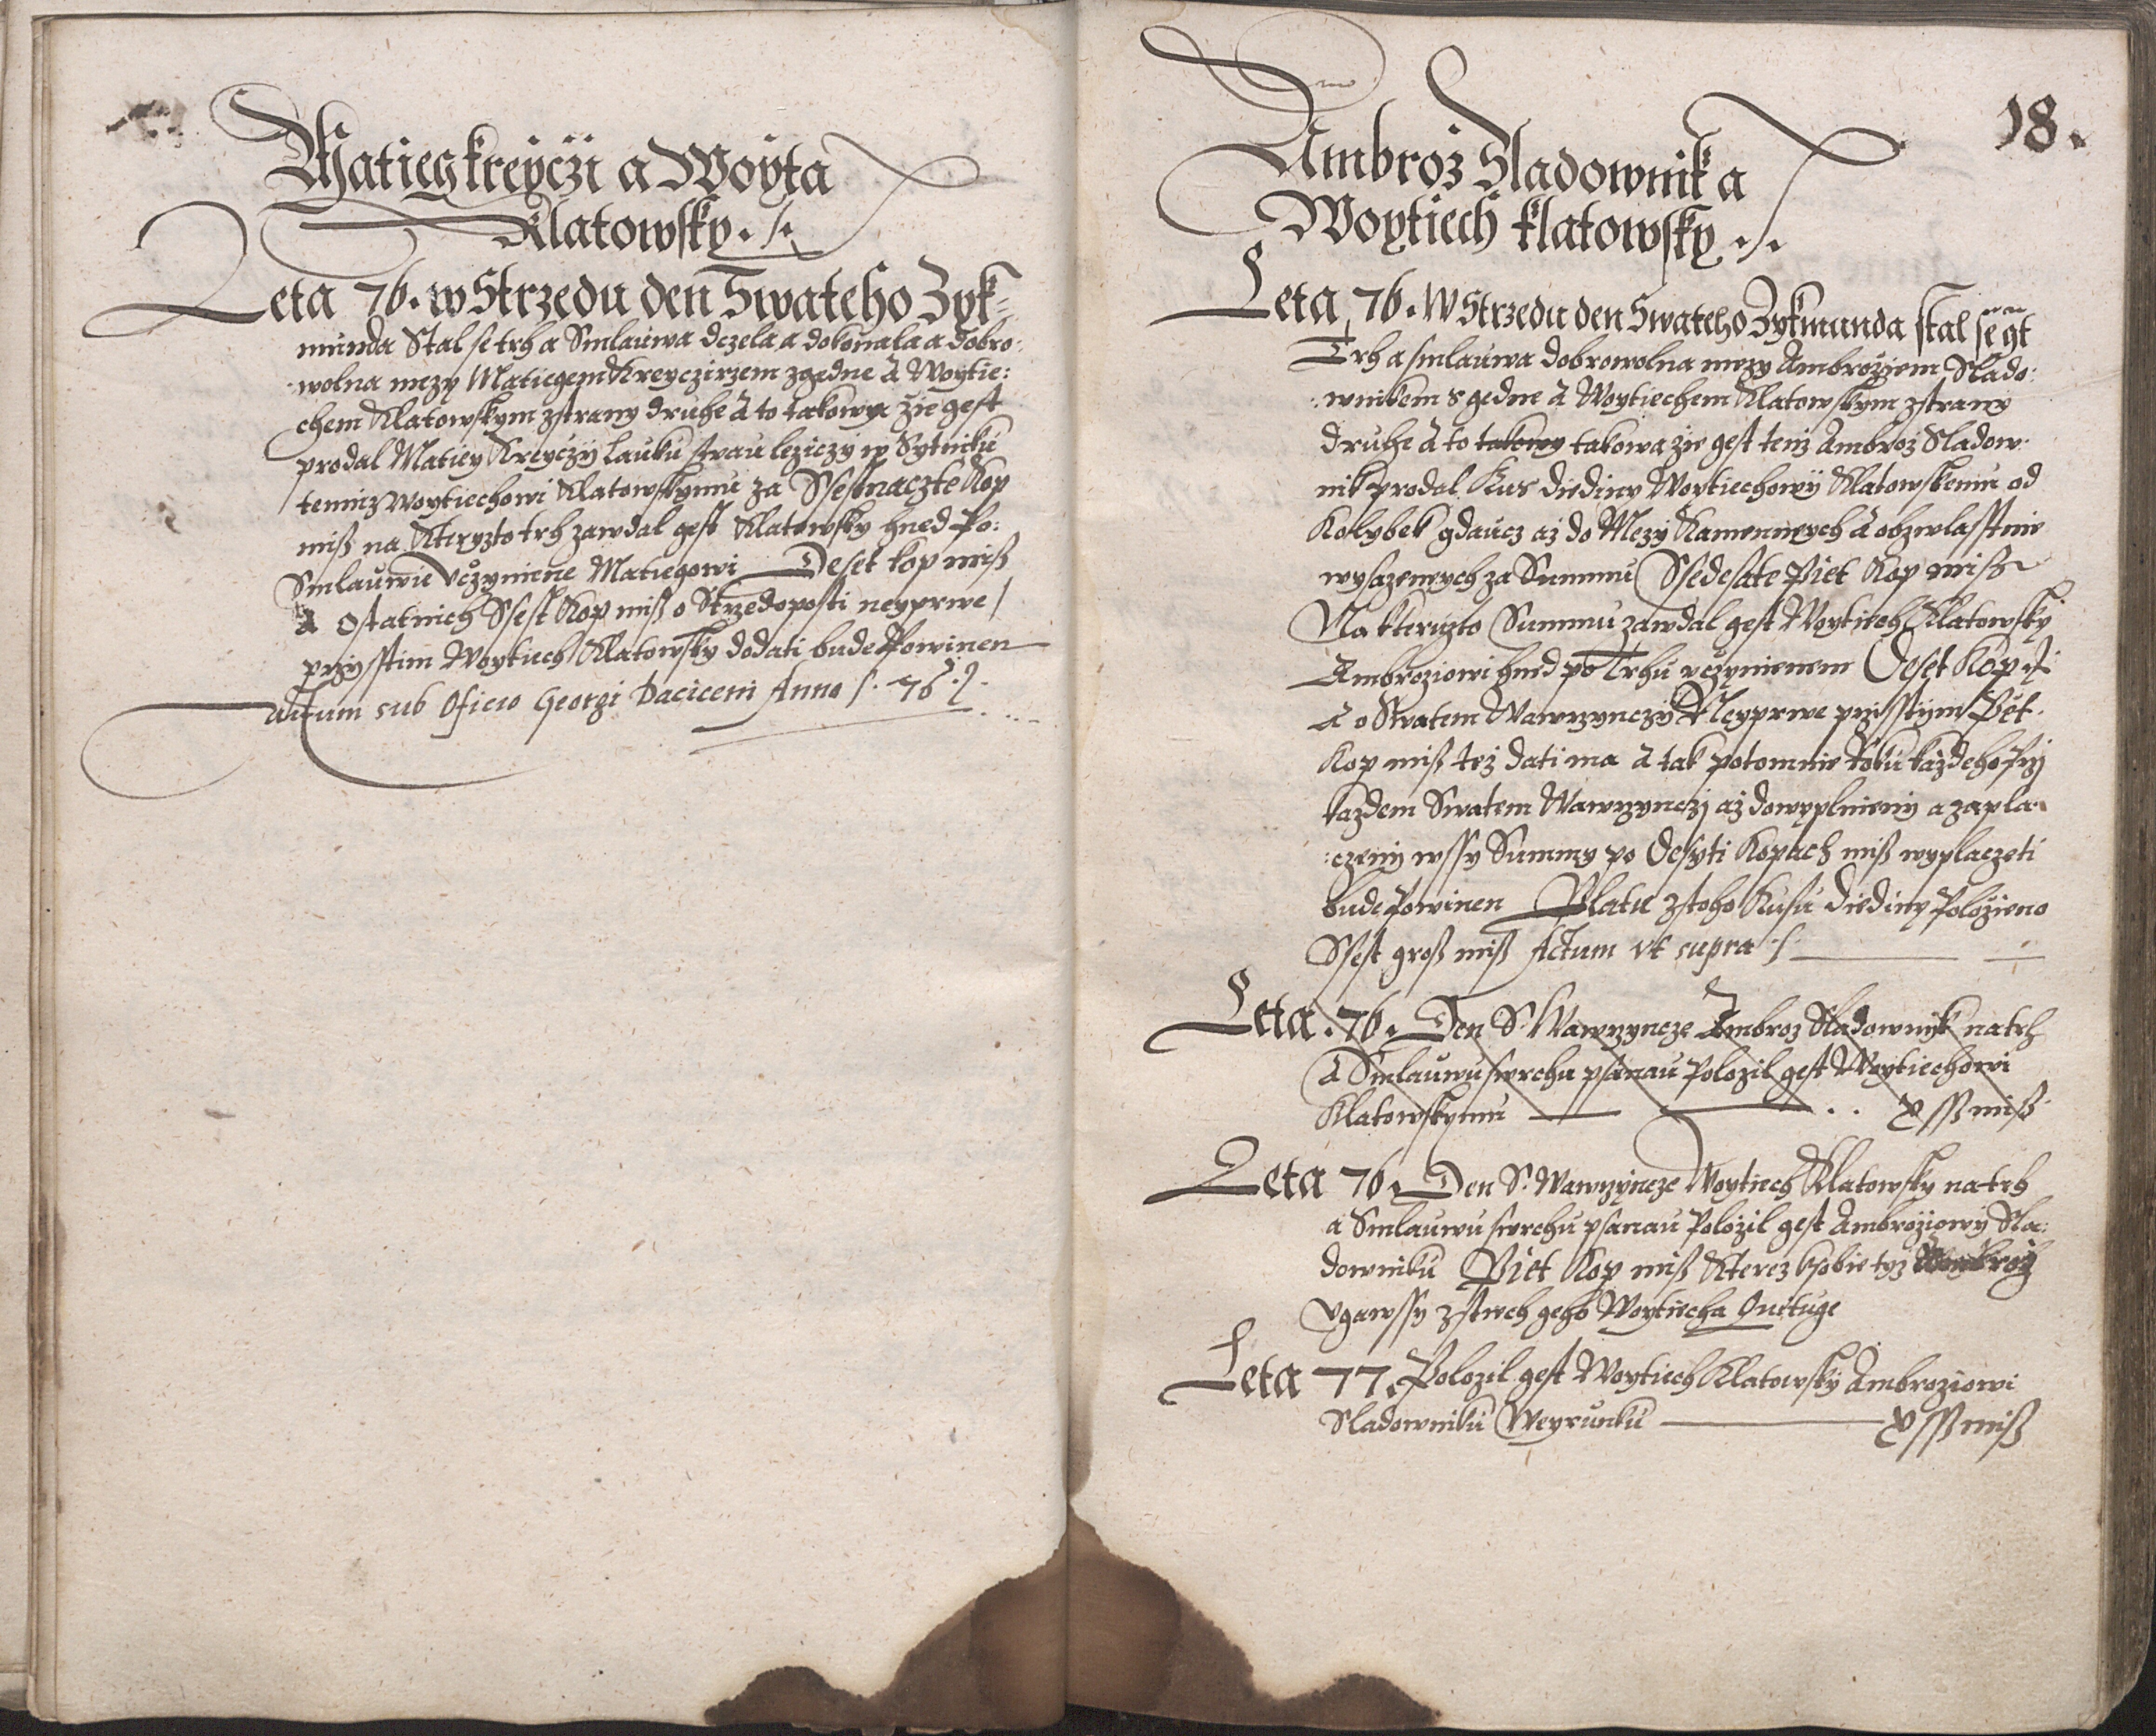 Matieg kreyczi a Woyta
Klatowsky
Leta 76. w Strzedu den Swateho Zyk=
munda Stal se trh a Smlauwa czela a dokonala a dobro:
wolna mezy Matiegem Kreyczirzem zgedne A Woytie:
chem Klatowskym zstrany druhe A to takowa zie gest
prodal Matiey Kreyczy lauku swau leziczy w Sytniku
temuz Woytiechowi Klatowskymu za Ssestnaczte Kop
miß na Kteryzto trh zawdal gest Klatowsky hned Po:
Smlauwie Vczyniene Matiegowi Deset kop miß
A Ostatnich Ssest Kop miß o Strzedoposti neyprwe
przysstim Woytiech Klatowsky dodati bude Powinen
Actum sub Oficio Georgi Daciceni Anno 76
18.
Ambroz Sladownik a
Woytiech klatowsky
Leta 76. W Strzedu den Swateho Zykmunda stal se gt
Trh a smlauwa dobrowolna mezy Ambroziem Slado:
:wnikem s gedne A Woytiechem Klatowskym zstrany
druhe A to takowy takowa zie gest tenz Ambroz Sladow:
nik prodal Kus diediny Woytiechowy Klatowskemu od
Kolybek gdaucz az do Mezy Kamennych A obzwlasstnie
wysazenych za Summu Ssedesate Piet Kop miß
Na kteruzto Summu zawdal gest Woytiech Klatowsky
Ambroziowi hned po Trhu vczynienem Deset Kop
A o Swatem Wawrzynczy Neyprwe przisstym Pet
Kop miß tez dati ma A tak potomnie Roku kazdeho Przi
kazdem Swatem Wawrzynczi az do wyplnieni a zapla:
:czeni wssy Summy po Desyti Kopach miß wyplaczeti
bude Powinen Platu zstoho Kusu diediny Polozieno
Ssest gross miß Actum vt supra
Leta 76. Den S. Wawrzyncze Ambroz Sladownik na trh
A Smlauwu swrchu psanau Polozil gest Woytiechowi
Klatowskymu X ss miß
Leta 76. Den S. Wawrzyncze Woytiech Klatowsky na trh
a Smlauwu swrchu psanau Polozil gest Ambroziowy Sla:
downiku Piet Kop miß Kterez ksobie tyz Ambroz
Vgawssy zstiech geho Woytiecha Quituge
Leta 77. Polozil gest Woytiech Klatowsky Ambroziowi
Sladowniku Weyrunku X ss miß